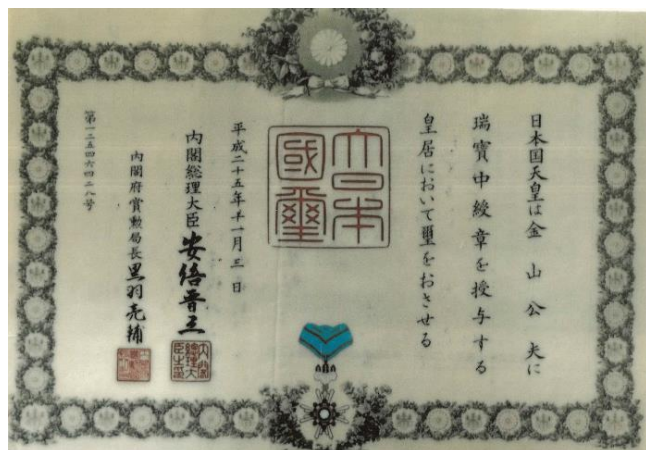 日本国天皇は金山公夫に
瑞寶中綬章を授与する
皇居において璽をおさせる
大日本國璽
平成二十五年十一月三日
内閣総理大臣 安倍晋三
内閣総理大臣之印
内閣府賞勲局長 黒羽亮輔
第一二五四六四二八号